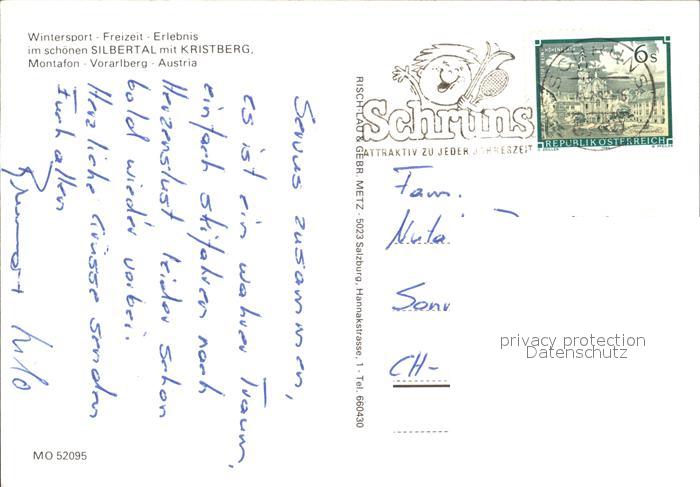 Wintersport - Freizeit - Erlebnis
im schönen SILBERTAL mit KRISTBERG,
Montafon - Vorarlberg - Austria
Servus zusammen,
es ist ein wahrer Traum,
einfach skifahren nach
Herzenslust leider schon
bald wieder vorbei.
Herzliche Grüsse senden
Euch allen
MO 52095
RISCH-LAU & GEBR. METZ · 5023 Salzburg, Hannakstrasse, 1 - Tel. 660430
Schruns
ATTRAKTIV ZU JEDER JAHRESZEIT
6s
REPUBLIK ÖSTERREICH
Fam.
CH-
privacy protection
Datenschutz